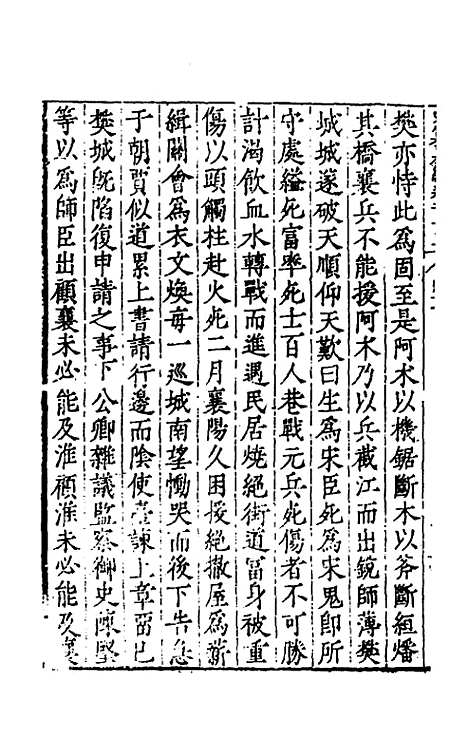 樊亦恃此為固至是阿术以機鋸斷木以斧斷絙燔
其橋襄兵不能援阿木乃以兵截江而出銳師薄樊
城城遂破天順仰天歎曰生為宋臣死為宋鬼即所
守處縊死富率死士百人巷戰元兵死傷者不可勝
計渴飲血水轉戰而進遇民居燒絕街道冨身被重
傷以頭觸柱赴火死二月襄陽久困援絕撤屋為薪
緝關會為衣文煥每一巡城南望慟哭而後下告急
于朝賈似道累上書請行邊而陰使臺諫上章留已
樊城旣陷復申請之事下公卿雜議監察御史陳堅
等以為師臣出顧襄未必能及淮顧淮未必能及襄